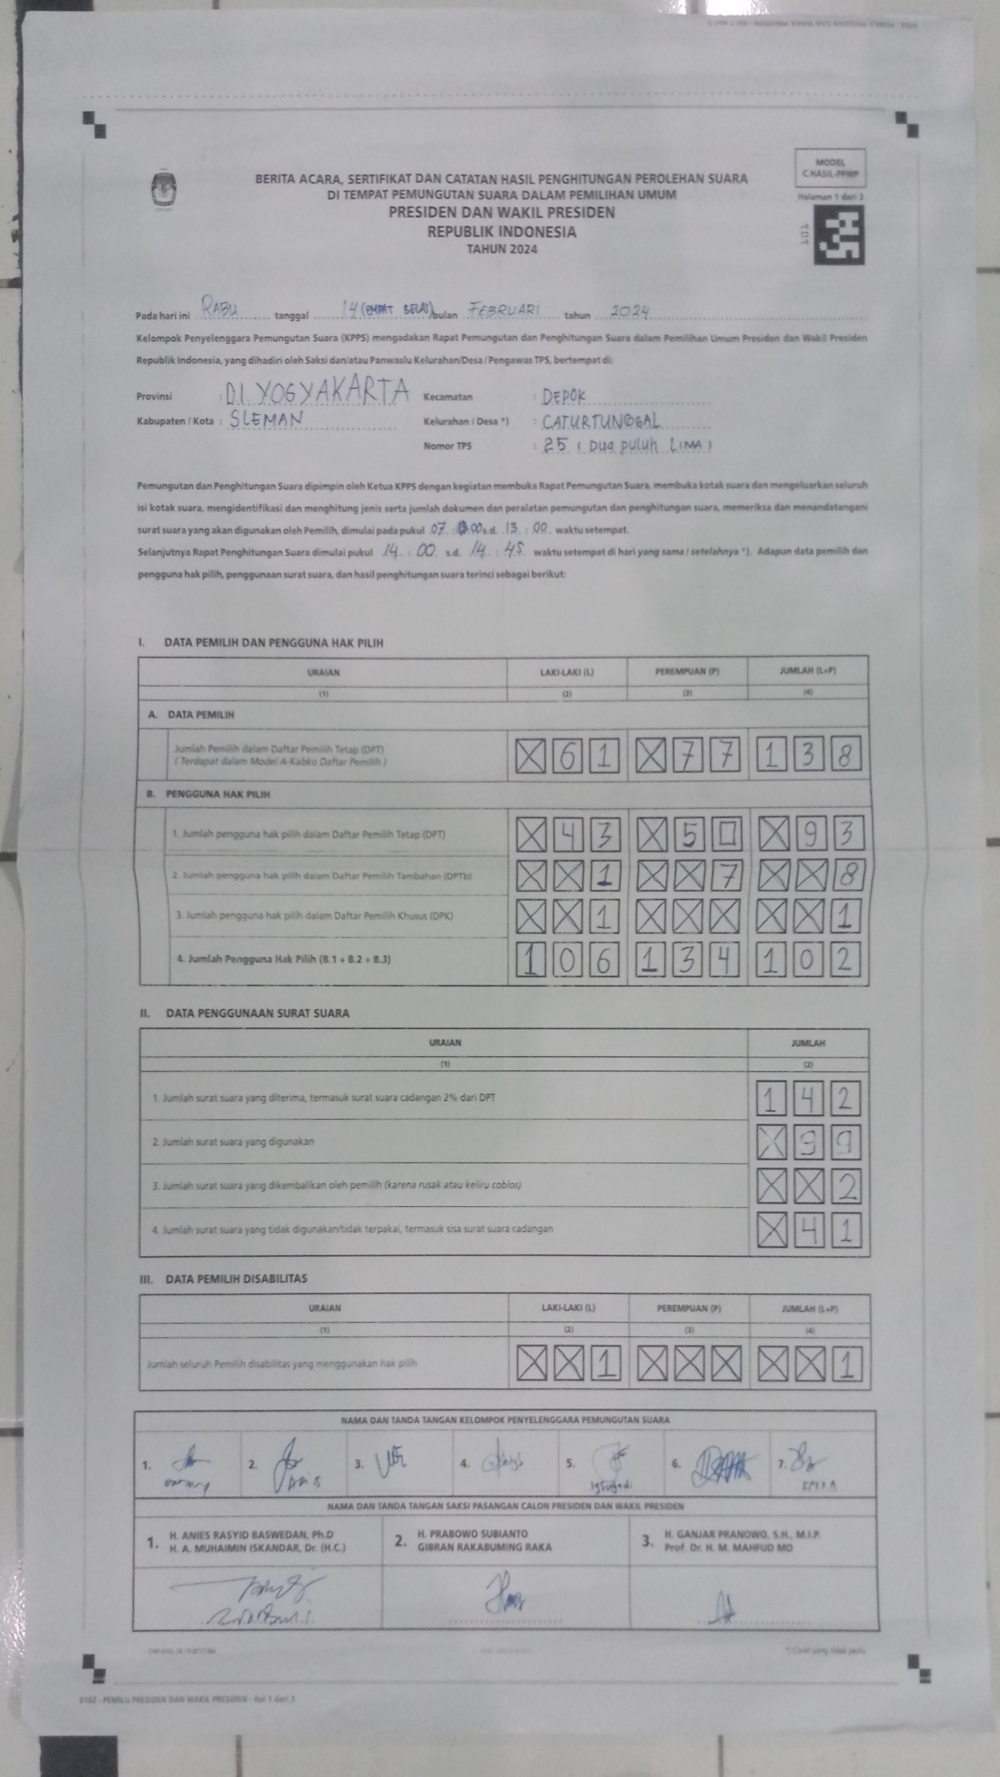 MODEL
C.HASIL-PPWP
Halaman 1 dari 3
BERITA ACARA, SERTIFIKAT DAN CATATAN HASIL PENGHITUNGAN PEROLEHAN SUARA
DI TEMPAT PEMUNGUTAN SUARA DALAM PEMILIHAN UMUM
PRESIDEN DAN WAKIL PRESIDEN
REPUBLIK INDONESIA
TAHUN 2024
101
Pada hari ini RABU tanggal 14 (EMPAT BELAS) bulan FEBRUARI tahun 2024
Kelompok Penyelenggara Pemungutan Suara (KPPS) mengadakan Rapat Pemungutan dan Penghitungan Suara dalam Pemilihan Umum Presiden dan Wakil Presiden
Republik Indonesia, yang dihadiri oleh Saksi dan/atau Panwaslu Kelurahan/Desa / Pengawas TPS, bertempat di:
Provinsi : D.I. YOGYAKARTA Kecamatan : DEPOK
Kabupaten / Kota : SLEMAN Kelurahan / Desa *) : CATURTUNGGAL
Nomor TPS : 25 ( Dua puluh LIMA )
Pemungutan dan Penghitungan Suara dipimpin oleh Ketua KPPS dengan kegiatan membuka Rapat Pemungutan Suara, membuka kotak suara dan mengeluarkan seluruh
isi kotak suara, mengidentifikasi dan menghitung jenis serta jumlah dokumen dan peralatan pemungutan dan penghitungan suara, memeriksa dan menandatangani
surat suara yang akan digunakan oleh Pemilih, dimulai pada pukul 07 : 00 s.d. 13 : 00 waktu setempat.
Selanjutnya Rapat Penghitungan Suara dimulai pukul 14 : 00 s.d. 14 : 45 waktu setempat di hari yang sama / setelahnya *). Adapun data pemilih dan
pengguna hak pilih, penggunaan surat suara, dan hasil penghitungan suara terinci sebagai berikut:
I. DATA PEMILIH DAN PENGGUNA HAK PILIH
URAIAN LAKI-LAKI (L) PEREMPUAN (P) JUMLAH (L+P)
(1) (2) (3) (4)
A. DATA PEMILIH
Jumlah Pemilih dalam Daftar Pemilih Tetap (DPT)
( Terdapat dalam Model A-Kabko Daftar Pemilih ) X 6 1 X 7 7 1 3 8
B. PENGGUNA HAK PILIH
1. Jumlah pengguna hak pilih dalam Daftar Pemilih Tetap (DPT) X 4 3 X 5 0 X 9 3
2. Jumlah pengguna hak pilih dalam Daftar Pemilih Tambahan (DPTb) X X 1 X X 7 X X 8
3. Jumlah pengguna hak pilih dalam Daftar Pemilih Khusus (DPK) X X 1 X X X X X 1
4. Jumlah Pengguna Hak Pilih (B.1 + B.2 + B.3) 1 0 6 1 3 4 1 0 2
II. DATA PENGGUNAAN SURAT SUARA
URAIAN JUMLAH
(1) (2)
1. Jumlah surat suara yang diterima, termasuk surat suara cadangan 2% dari DPT 1 4 2
2. Jumlah surat suara yang digunakan X 9 9
3. Jumlah surat suara yang dikembalikan oleh pemilih (karena rusak atau keliru coblos) X X 2
4. Jumlah surat suara yang tidak digunakan/tidak terpakai, termasuk sisa surat suara cadangan X 4 1
III. DATA PEMILIH DISABILITAS
URAIAN LAKI-LAKI (L) PEREMPUAN (P) JUMLAH (L+P)
(1) (2) (3) (4)
Jumlah seluruh Pemilih disabilitas yang menggunakan hak pilih X X 1 X X X X X 1
NAMA DAN TANDA TANGAN KELOMPOK PENYELENGGARA PEMUNGUTAN SUARA
1. 2. 3. 4. 5. 6. 7.
NAMA DAN TANDA TANGAN SAKSI PASANGAN CALON PRESIDEN DAN WAKIL PRESIDEN
1. H. ANIES RASYID BASWEDAN, Ph.D
H. A. MUHAIMIN ISKANDAR, Dr. (H.C.)
2. H. PRABOWO SUBIANTO
GIBRAN RAKABUMING RAKA
3. H. GANJAR PRANOWO, S.H., M.I.P.
Prof. Dr. H. M. MAHFUD MD
*) Coret yang tidak perlu
0102 - PEMILU PRESIDEN DAN WAKIL PRESIDEN - Hal 1 dari 3